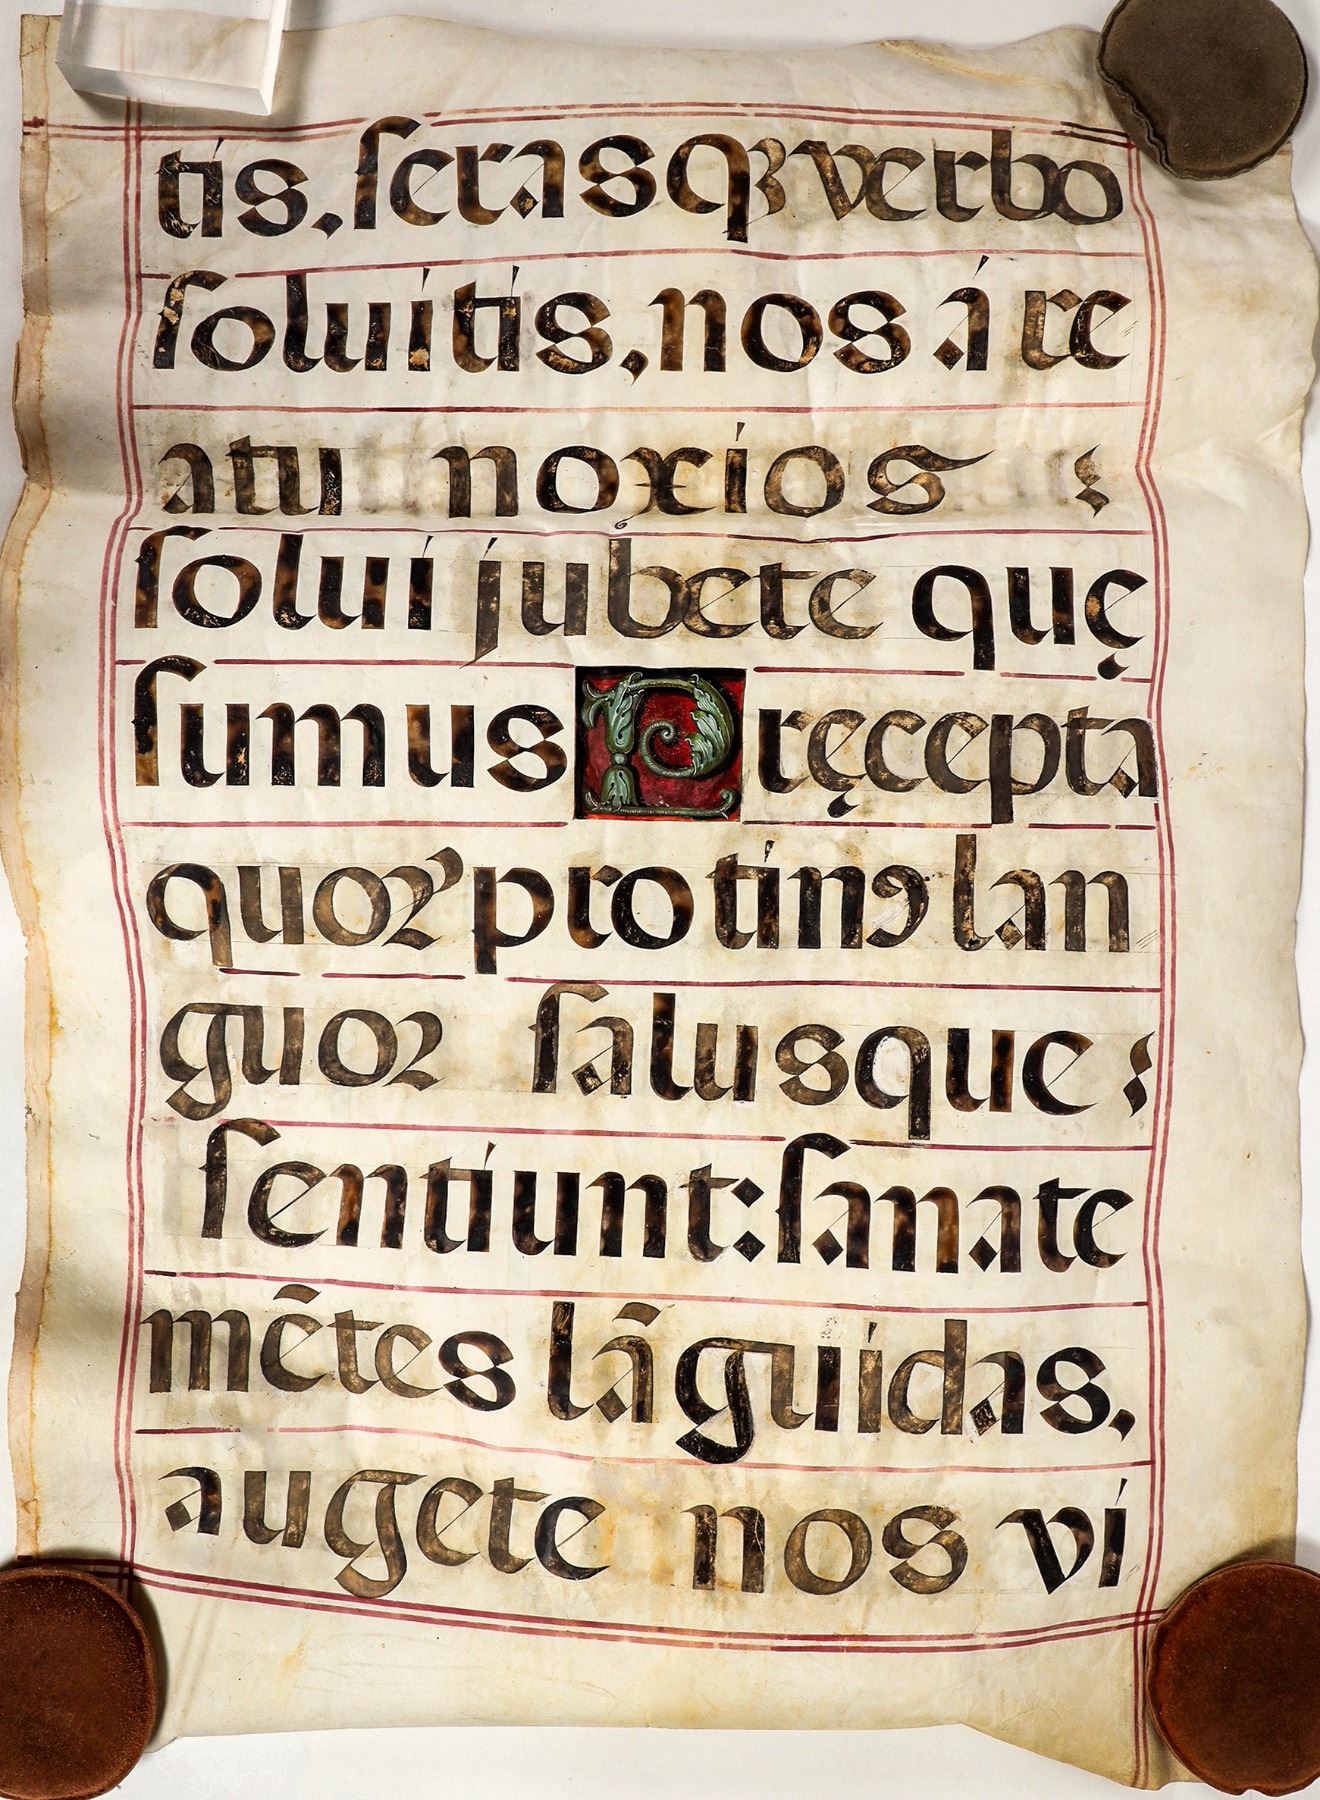 tis. ſerasqꝫ verbo
ſoluitis, nos á re
atu noxios
ſolui jubete quę
ſumus Pręcepta
quoꝝ protinꝰ lan
guoꝛ ſalusque
ſentiunt: ſanate
mētes lāguidas.
augete nos vi